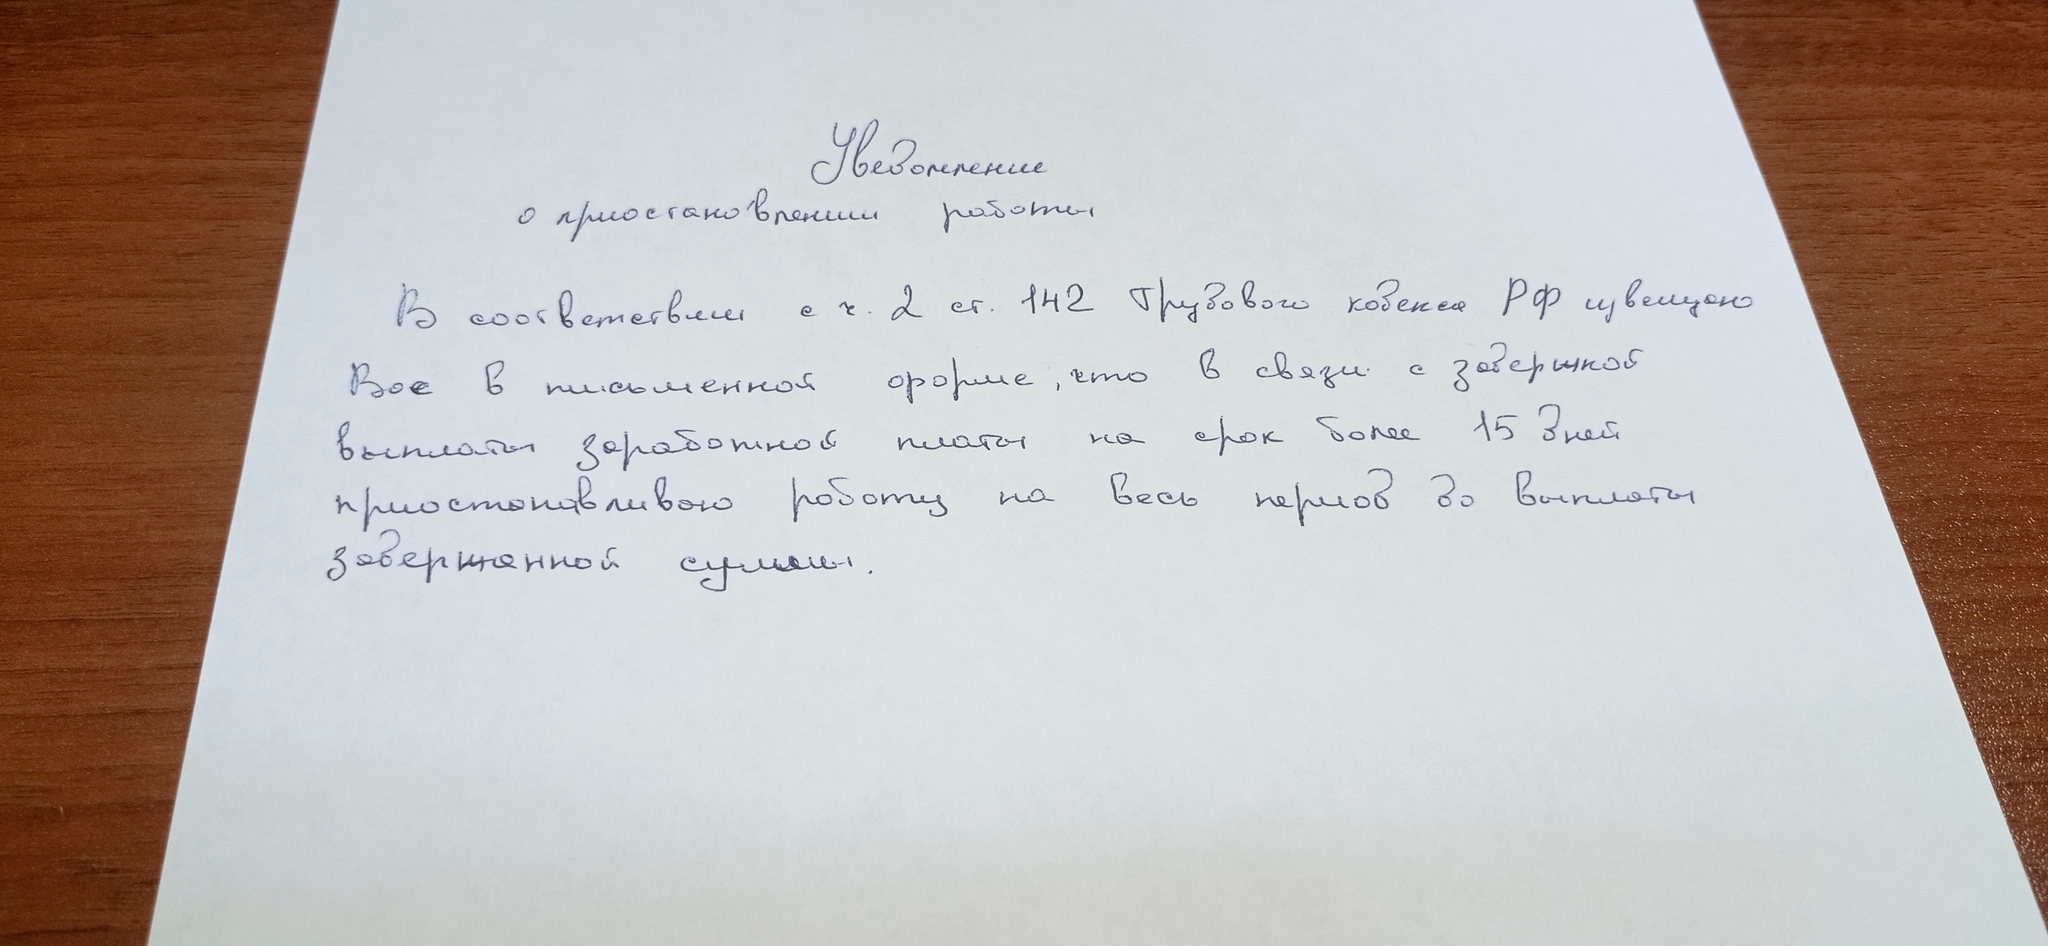 Уведомление
о приостановлении работы
В соответствии с ч. 2 ст. 142 Трудового кодекса РФ извещаю
Вас в письменной форме, что в связи с задержкой
выплаты заработной платы на срок более 15 дней
приостанавливаю работу на весь период до выплаты
задержанной суммы.